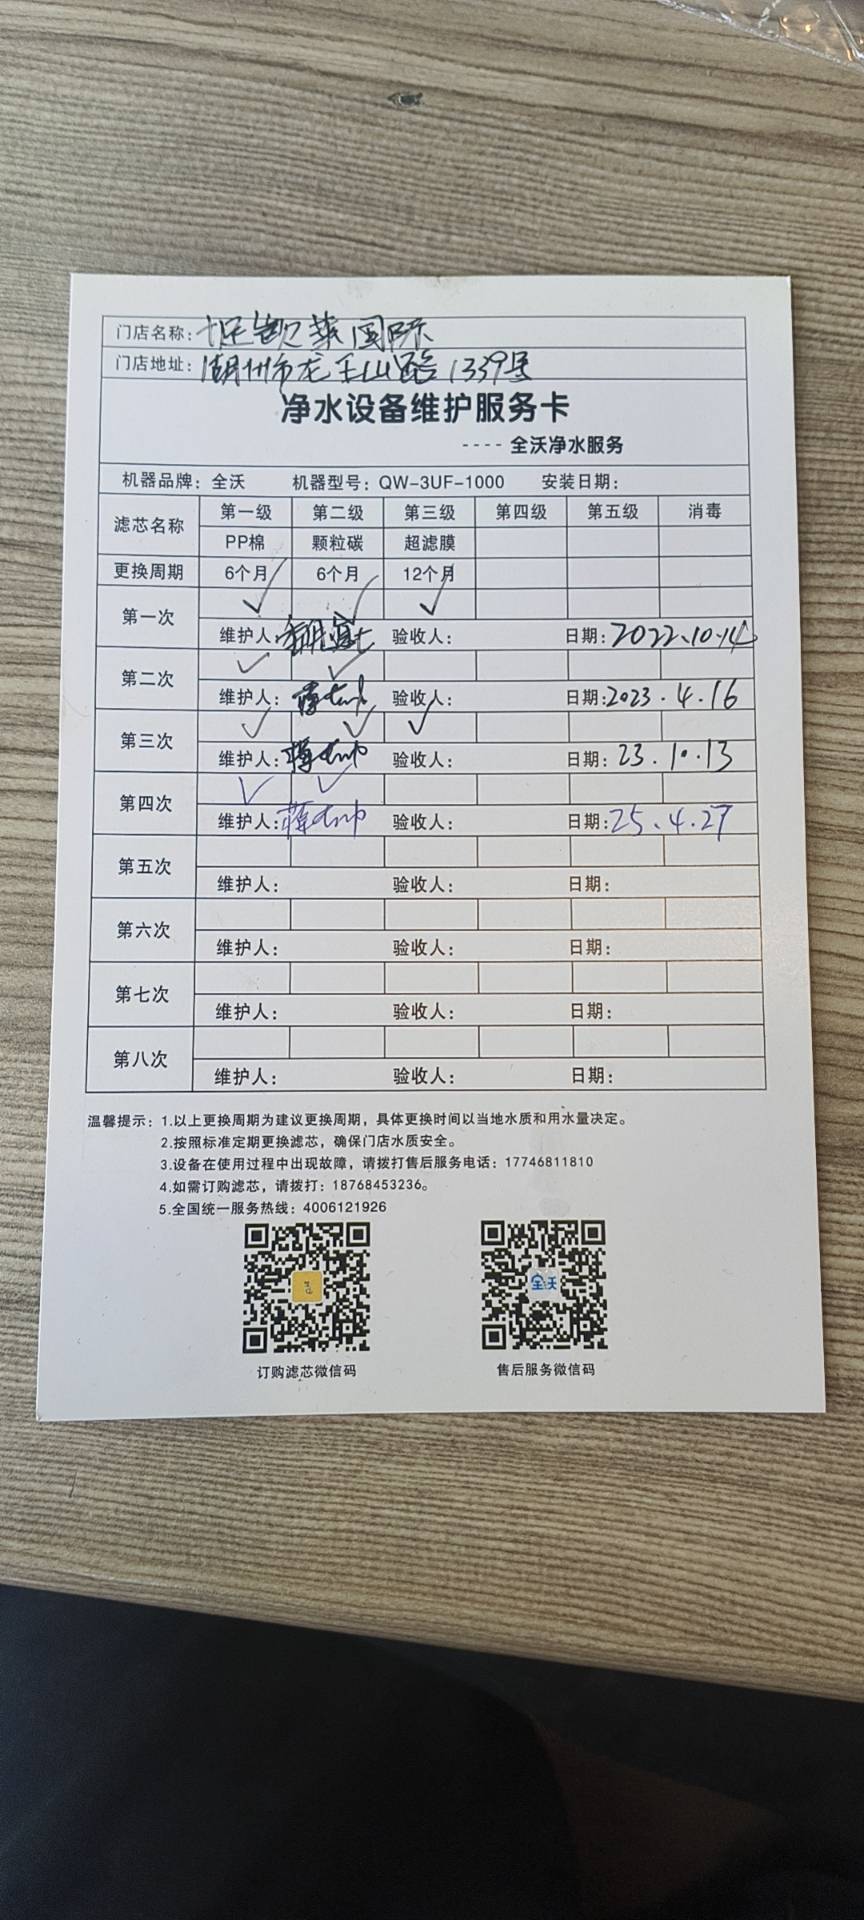 门店名称：凯莱国际
门店地址：湖州市龙王山路1339号
净水设备维护服务卡
---- 全沃净水服务
机器品牌：全沃 机器型号：QW-3UF-1000 安装日期：
滤芯名称 第一级 第二级 第三级 第四级 第五级 消毒
PP棉 颗粒碳 超滤膜
更换周期 6个月 6个月 12个月
第一次 ✓ ✓ ✓
维护人： 验收人： 日期：2022.10.14
第二次 ✓ ✓
维护人： 验收人： 日期：2023.4.16
第三次 ✓ ✓ ✓
维护人： 验收人： 日期：23.10.13
第四次 ✓ ✓
维护人： 验收人： 日期：25.4.27
第五次
维护人： 验收人： 日期：
第六次
维护人： 验收人： 日期：
第七次
维护人： 验收人： 日期：
第八次
维护人： 验收人： 日期：
温馨提示：1.以上更换周期为建议更换周期，具体更换时间以当地水质和用水量决定。
2.按照标准定期更换滤芯，确保门店水质安全。
3.设备在使用过程中出现故障，请拨打售后服务电话：17746811810
4.如需订购滤芯，请拨打：18768453236。
5.全国统一服务热线：4006121926
全沃
订购滤芯微信码 售后服务微信码